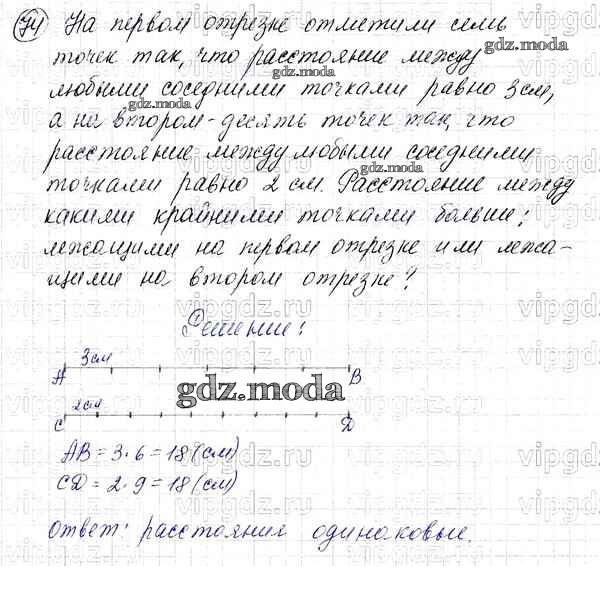 74 На первом отрезке отметили семь
точек так, что расстояние между
любыми соседними точками равно 3см,
а на втором - десять точек так, что
расстояние между любыми соседними
точками равно 2 см. Расстояние между
какими крайними точками больше:
лежащими на первом отрезке или лежа-
щими на втором отрезке?
Решение:
3см
A B
gdz.moda
2см
C D
AB = 3·6 = 18 (см)
CD = 2·9 = 18 (см)
Ответ: расстояния одинаковые.